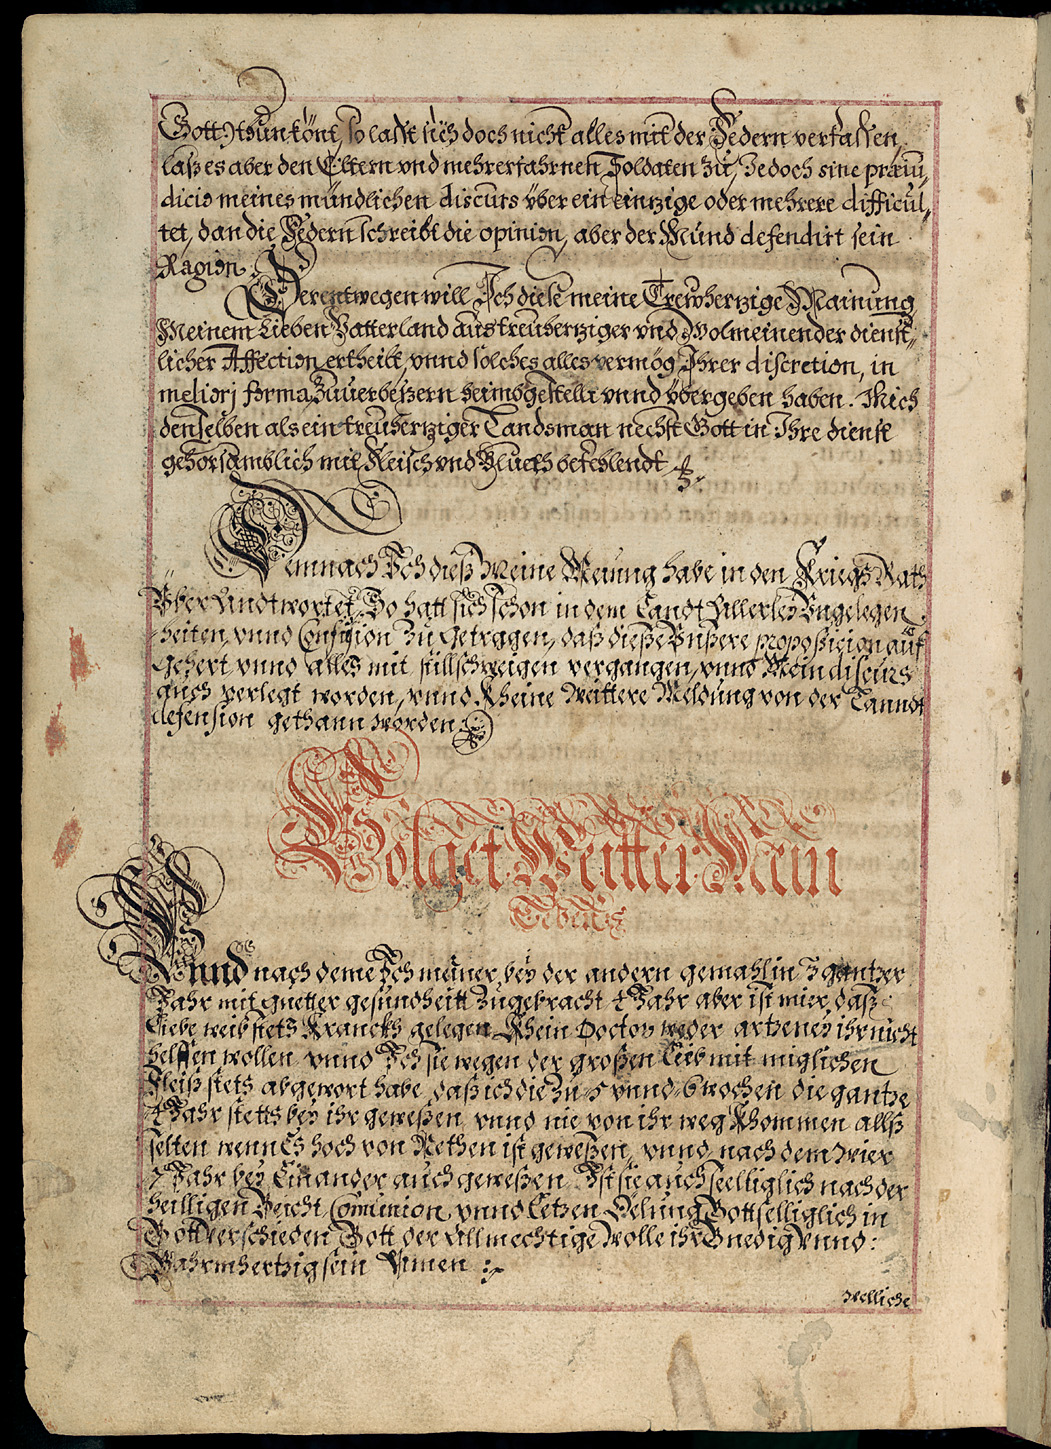 Gott thun könt, so lasst sich doch nicht alles mit der Federn verfassen,
lass es aber den Eltern vnd mehrerfahrnen Soldaten zu, Jedoch sine præiu„
dicio meines mündlichen discurs über ein eintzige oder mehrere difficul„
tet, dan die Federn schreibt die opinion, aber der Mund defendirt sein
Ragion.
Derentwegen will Ich diese meine Trewhertzige Mainung
Meinem Lieben Vatterland aus treuhertziger vnd Wolmeinender dienst„
licher Affection ertheilt, vnnd solches alles vermög Ihrer discretion, in
meliori forma Zuuerbessern heimbgestellt vnnd übergeben haben. Mich
denselben als ein treuhertziger Landsman nechst Gott in Ihre dienst
gehorsamblich mit Fleisch vnd Blueth befehlendt
Demnach Ich dieß Meine Meiung habe in den Kriegs Rath
Über Andtwortet, So hatt sich schon in dem Landt Allerley Angelegen
heiten, vnnd Confusion Zu Getragen, daß dieße Unßere proposicion auf
gehert vnnd alles mit stillschweigen vergangen, vnnd Mein discurs
auch verlegt worden, vnnd Kheine Weittere Meldung von der Lanndt
defension gethann worden
Folget Weitter Mein
Lebens
Vnnd nach deme Ich meiner, bey der andern gemahlin 3 gantzer
Jahr mit guetter gesundheitt Zugebracht 4 Jahr aber ist mier, daß
Liebe weib stets Kranckh gelegen Khein Doctor weder artzeney ihr nicht
helffen wollen vnnd Ich sie wegen der großen Lieb mit miglichen
Fleiß stets abgewort habe, daß ich die Zu 5 vnnd 6 wochen die gantze
4 Jahr stetts bey ihr geweßen vnnd nie von ihr weg Khommen allß
selten wenn Es hoch von Nethen ist geweßen, vnnd nach dem wier
7 Jahr bey Einander auch geweßen Ist sie auch seelliglich nach der
heilligen Beicht, Comunion, vnnd Letzen Oelung Gottselliglich in
Gott verschieden Gott der Allmechtige Wolle ihr Gnedig Vnnd:
Bahrmhertzig sein Amen
Welliche